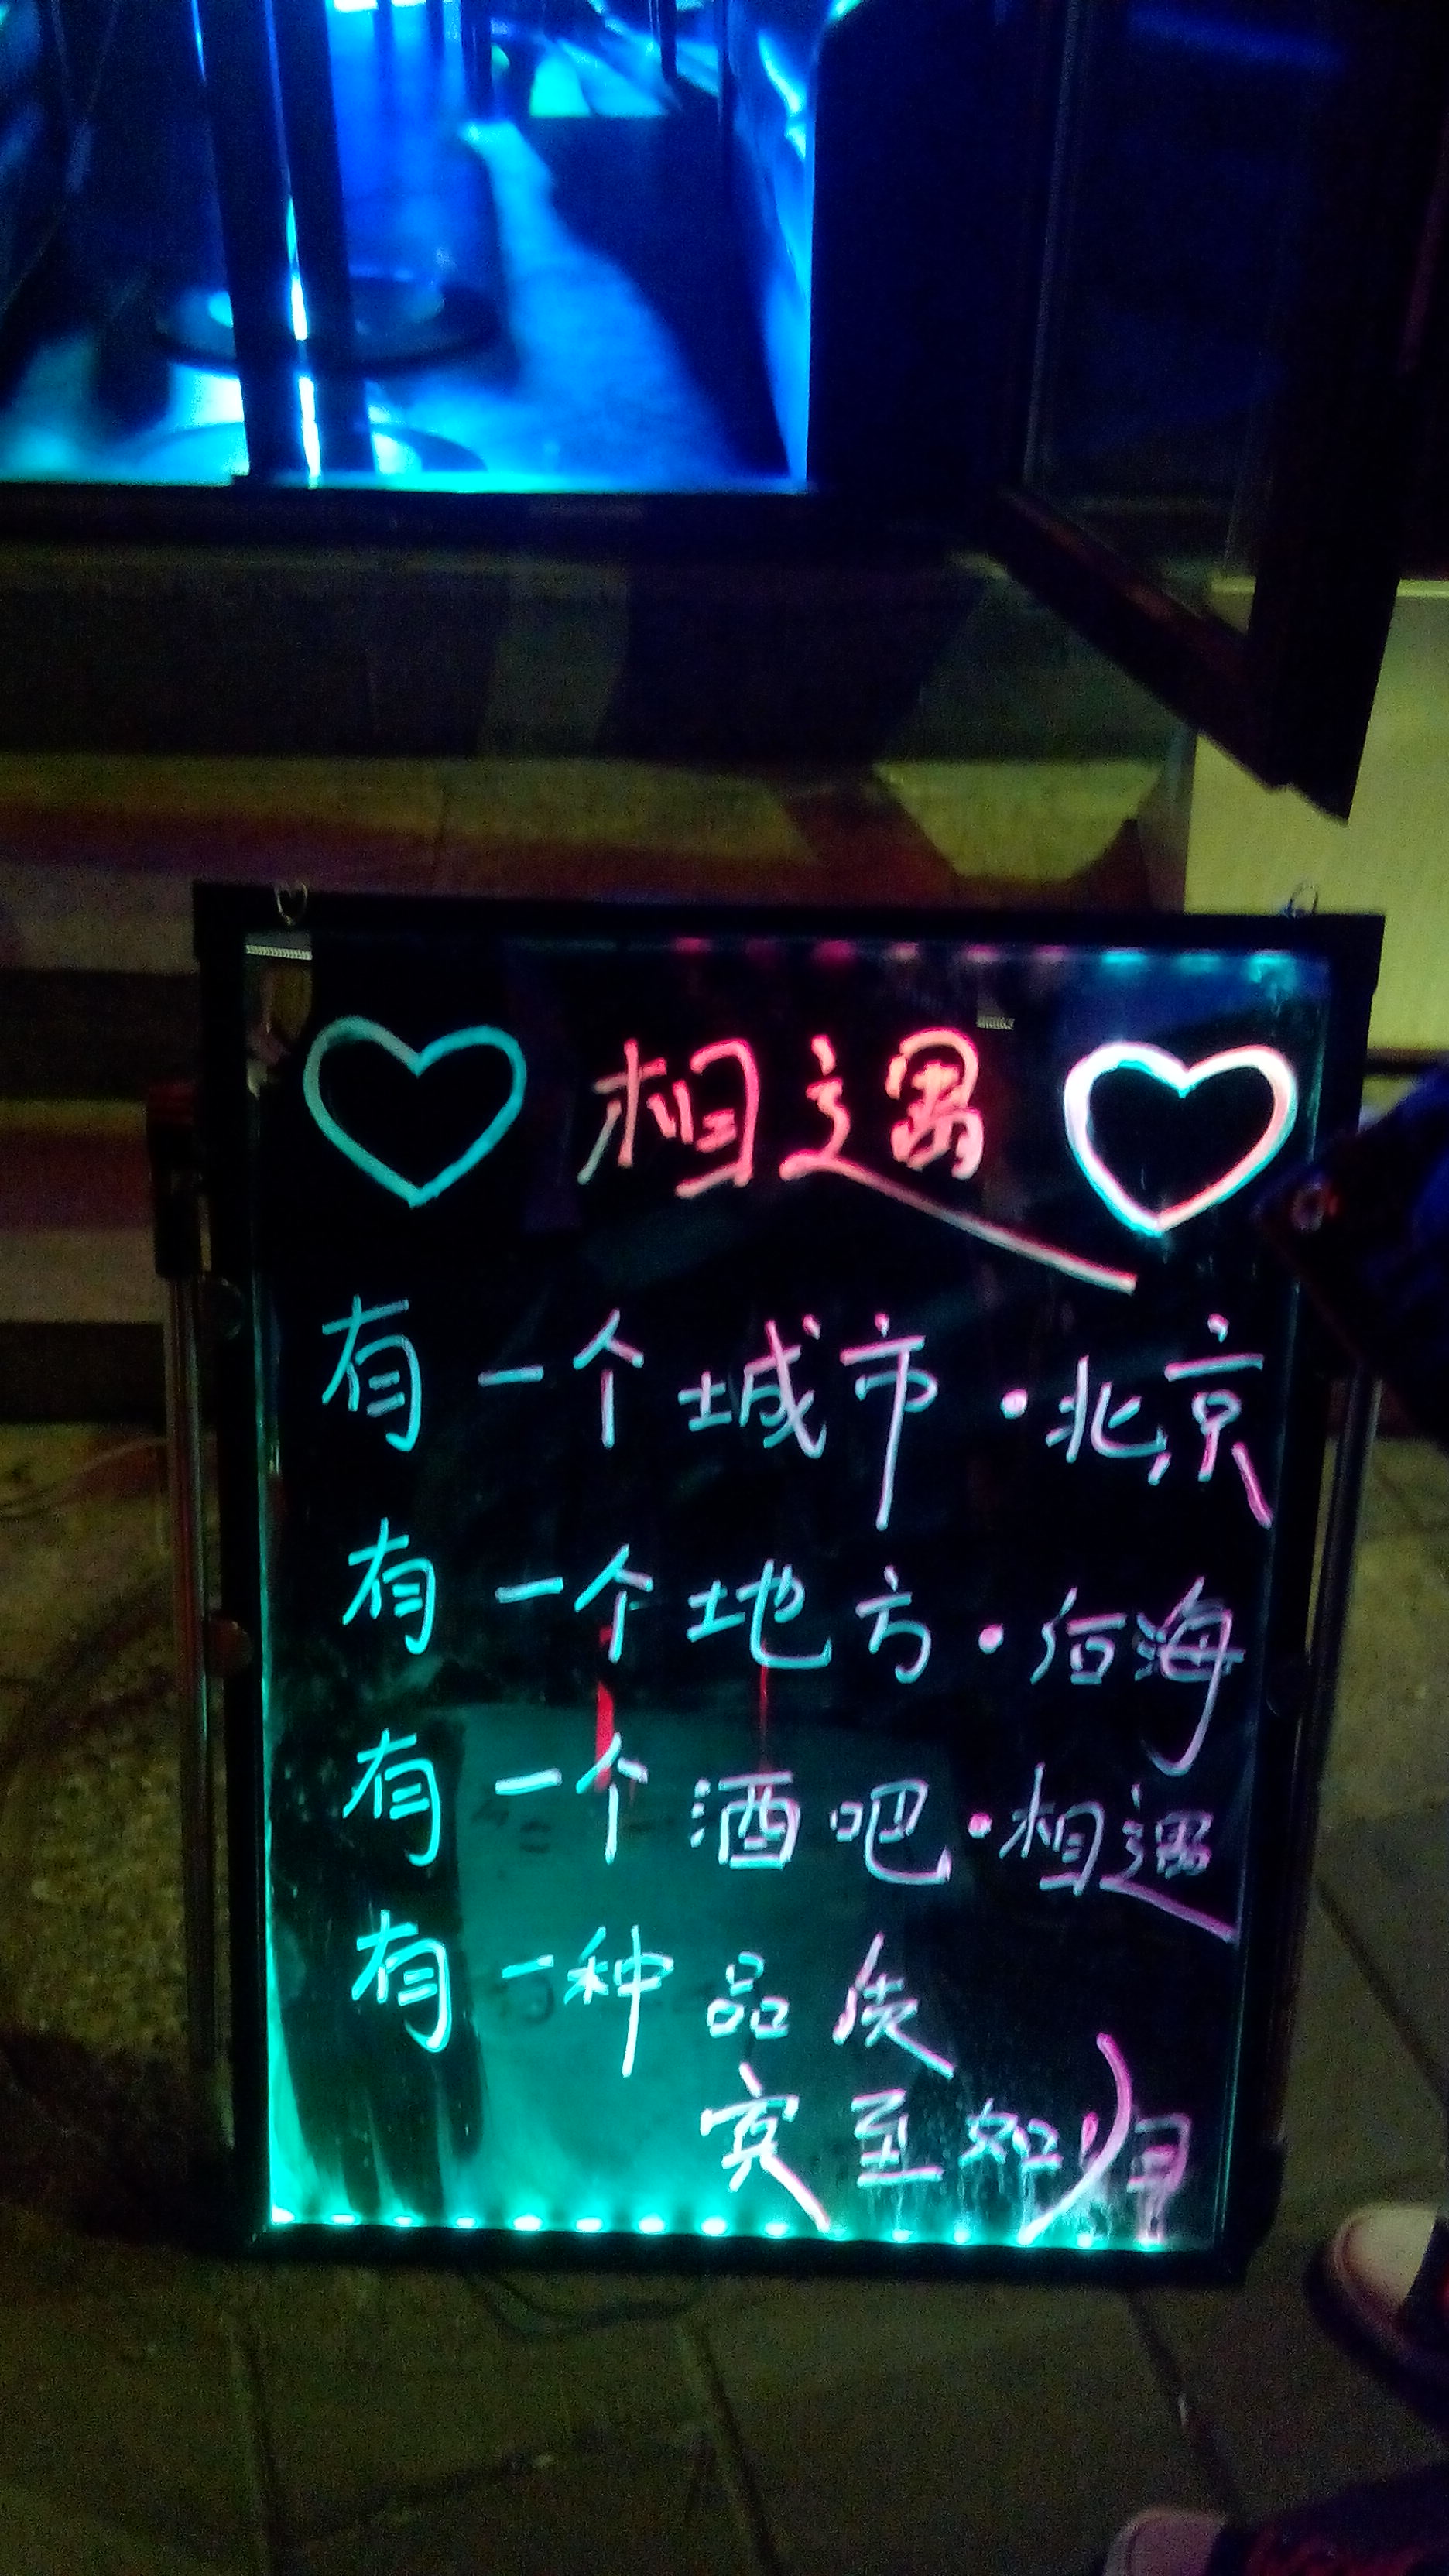 相遇
有一个城市·北京
有一个地方·后海
有一个酒吧·相遇
有一种品质
宾至如归